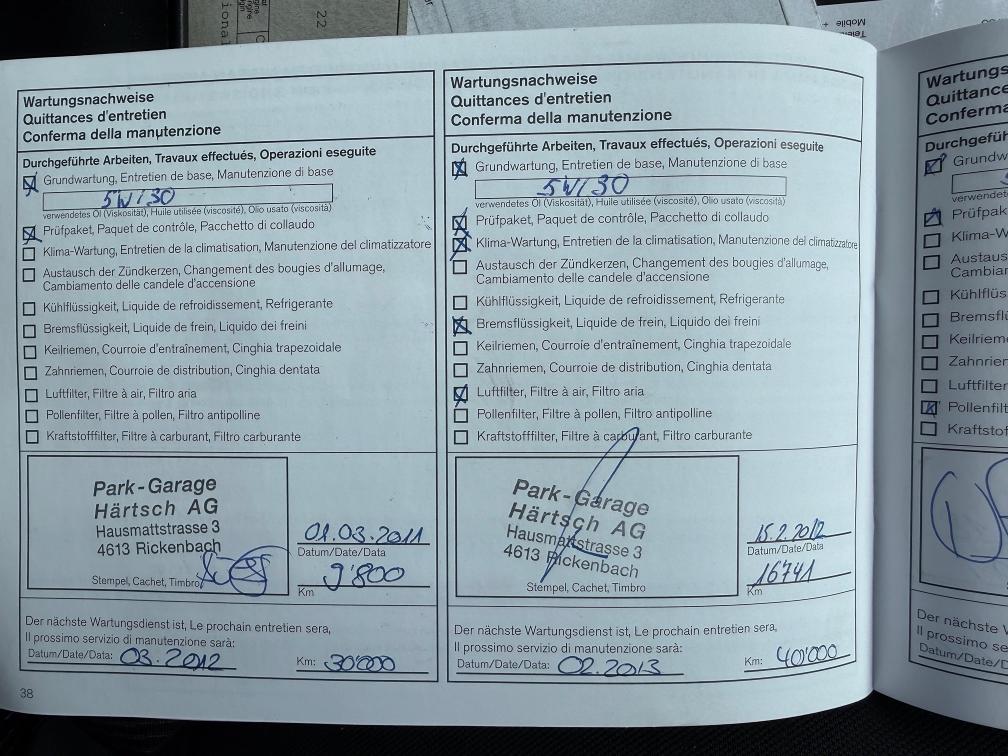 22
Mobile +
Wartungsnachweise
Quittances d'entretien
Conferma della manutenzione
Durchgeführte Arbeiten, Travaux effectués, Operazioni eseguite
Grundwartung, Entretien de base, Manutenzione di base
5W/30
verwendetes Öl (Viskosität), Huile utilisée (viscosité), Olio usato (viscosità)
Prüfpaket, Paquet de contrôle, Pacchetto di collaudo
Klima-Wartung, Entretien de la climatisation, Manutenzione del climatizzatore
Austausch der Zündkerzen, Changement des bougies d'allumage,
Cambiamento delle candele d'accensione
Kühlflüssigkeit, Liquide de refroidissement, Refrigerante
Bremsflüssigkeit, Liquide de frein, Liquido dei freini
Keilriemen, Courroie d'entraînement, Cinghia trapezoidale
Zahnriemen, Courroie de distribution, Cinghia dentata
Luftfilter, Filtre à air, Filtro aria
Pollenfilter, Filtre à pollen, Filtro antipolline
Kraftstofffilter, Filtre à carburant, Filtro carburante
Park-Garage
Härtsch AG
Hausmattstrasse 3
4613 Rickenbach
Stempel, Cachet, Timbro
01.03.2011
Datum/Date/Data
9'800
Km
Der nächste Wartungsdienst ist, Le prochain entretien sera,
Il prossimo servizio di manutenzione sarà:
Datum/Date/Data: 03.2012 Km: 30'000
38
Wartungsnachweise
Quittances d'entretien
Conferma della manutenzione
Durchgeführte Arbeiten, Travaux effectués, Operazioni eseguite
Grundwartung, Entretien de base, Manutenzione di base
5W/30
verwendetes Öl (Viskosität), Huile utilisée (viscosité), Olio usato (viscosità)
Prüfpaket, Paquet de contrôle, Pacchetto di collaudo
Klima-Wartung, Entretien de la climatisation, Manutenzione del climatizzatore
Austausch der Zündkerzen, Changement des bougies d'allumage,
Cambiamento delle candele d'accensione
Kühlflüssigkeit, Liquide de refroidissement, Refrigerante
Bremsflüssigkeit, Liquide de frein, Liquido dei freini
Keilriemen, Courroie d'entraînement, Cinghia trapezoidale
Zahnriemen, Courroie de distribution, Cinghia dentata
Luftfilter, Filtre à air, Filtro aria
Pollenfilter, Filtre à pollen, Filtro antipolline
Kraftstofffilter, Filtre à carburant, Filtro carburante
Park-Garage
Härtsch AG
Hausmattstrasse 3
4613 Rickenbach
Stempel, Cachet, Timbro
15.2.2012
Datum/Date/Data
16741
Km
Der nächste Wartungsdienst ist, Le prochain entretien sera,
Il prossimo servizio di manutenzione sarà:
Datum/Date/Data: 02.2013 Km: 40'000
Wartungs
Quittance
Conferma
Durchgefüh
Grundw
5
verwend
Prüfpak
Klima-W
Austaus
Cambiam
Kühlflüs
Bremsflü
Keilriem
Zahnrien
Luftfilter
Pollenfilt
Kraftstof
Der nächste W
Il prossimo se
Datum/Date/D